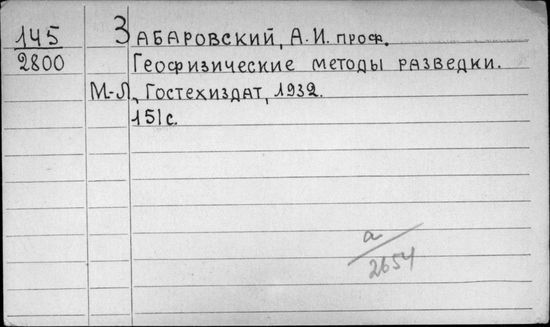 145 ЗАБАРОВСКИЙ, А.И. проф.
2800 Геофизические методы разведки.
М-Л, Гостехиздат, 1932.
151с.
а
2654